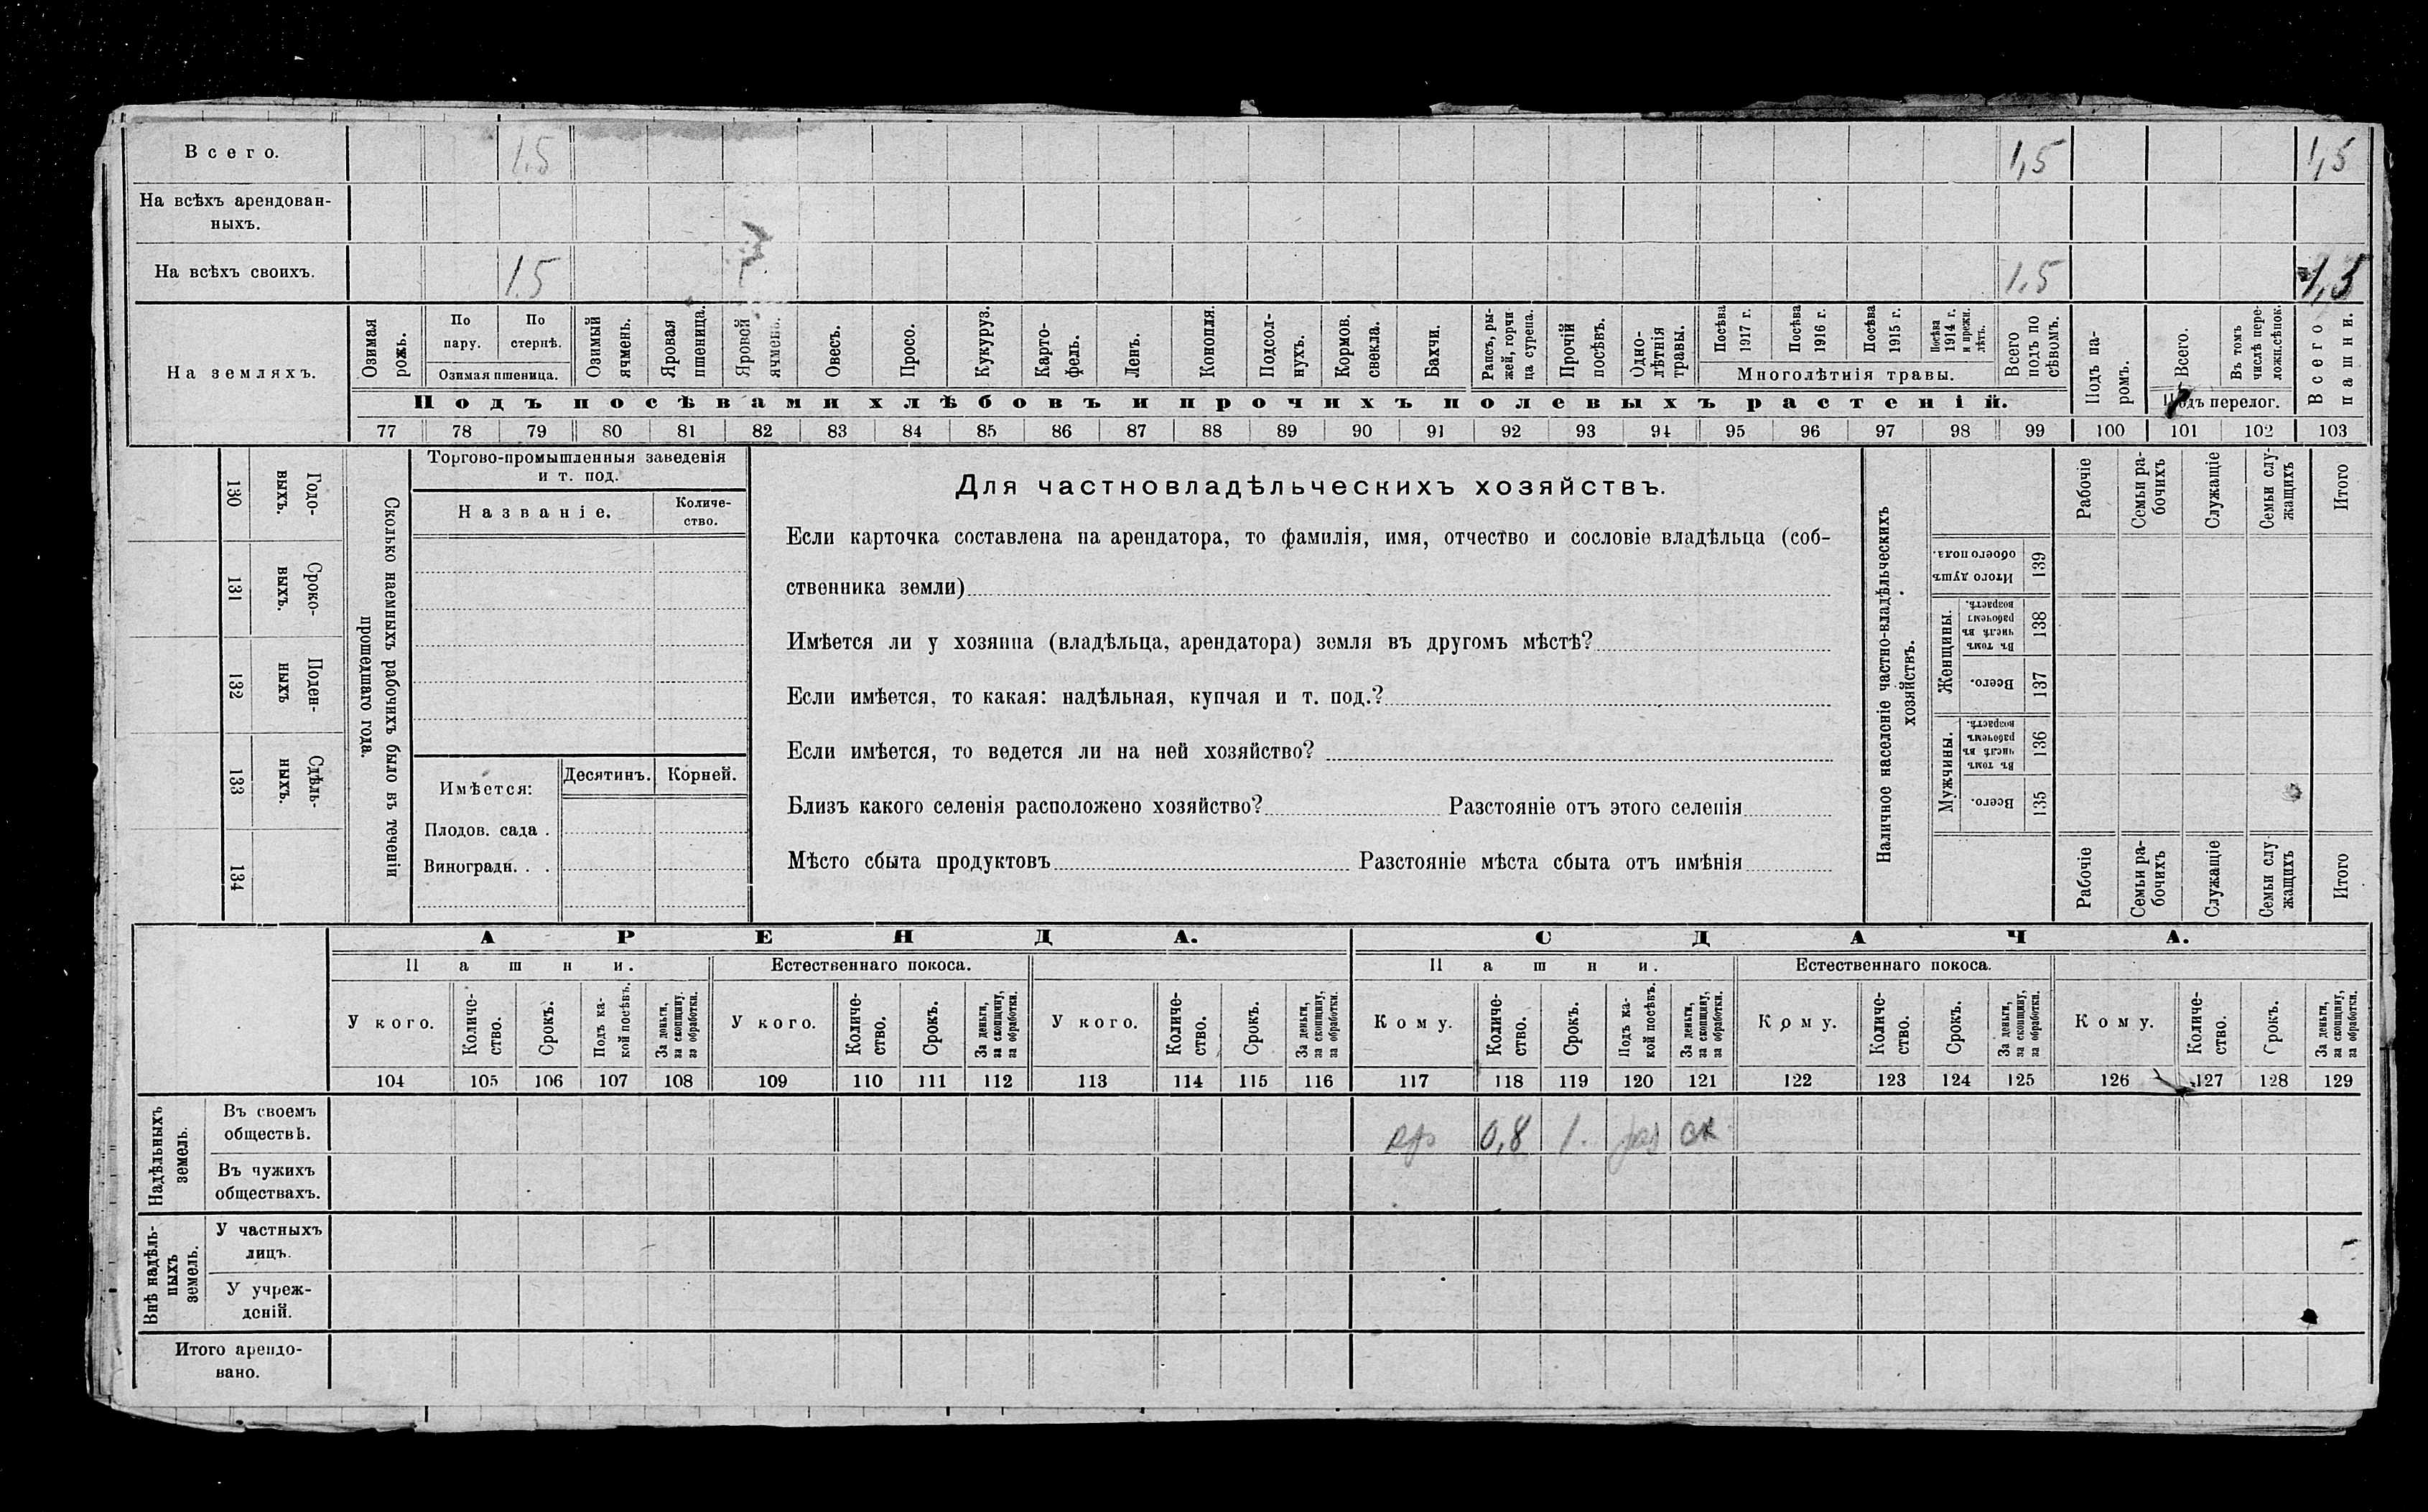 Всего. 1.5 1,5 1,5
На всѣхъ арендован-
ныхъ.
На всѣхъ своихъ. 1.5 1,5 1,5
На земляхъ.
Озимая
рожь.
По
пару.
По
стернѣ.
Озимая пшеница.
Озимый
ячмень.
Яровая
пшеница.
Яровой
ячмень.
Овесъ.
Просо.
Кукуруз.
Карто-
фель.
Ленъ.
Конопля.
Подсол-
нухъ.
Кормов.
свекла.
Бахчи.
Рапсъ, ры-
жей, горчи
ца сурепа.
Прочій
посѣвъ.
Одно-
лѣтнія
травы.
Посѣва
1917 г.
Посѣва
1916 г.
Посѣва
1915 г.
Посѣва
1914 г.
и прежн.
лѣтъ.
Многолѣтнія травы.
Всего
подъ по
сѣвомъ.
Подъ па-
ромъ.
Всего.
Въ томъ
числѣ пере-
ложн.сѣнок.
Подъ перелог.
Всего
пашни.
Подъ посѣвами хлѣбовъ и прочихъ полевыхъ растеній.
77 78 79 80 81 82 83 84 85 86 87 88 89 90 91 92 93 94 95 96 97 98 99 100 101 102 103
130
Годо-
выхъ.
131
Сроко-
выхъ.
132
Поден-
ныхъ
133
Сдѣль-
ныхъ.
134
Сколько наемныхъ рабочихъ было въ теченіи
прошедшаго года.
Торгово-промышленныя заведенія
и т. под.
Названіе.
Количе-
ство.
Имѣется:
Десятинъ. Корней.
Плодов. сада .
Виноградн. . .
Для частновладѣльческихъ хозяйствъ.
Если карточка составлена на арендатора, то фамилія, имя, отчество и сословіе владѣльца (соб-
ственника земли)
Имѣется ли у хозяина (владѣльца, арендатора) земля въ другомъ мѣстѣ?
Если имѣется, то какая: надѣльная, купчая и т. под.?
Если имѣется, то ведется ли на ней хозяйство?
Близъ какого селенія расположено хозяйство? Разстояніе отъ этого селенія
Мѣсто сбыта продуктовъ Разстояніе мѣста сбыта отъ имѣнія
Наличное населеніе частно-владѣльческихъ
хозяйствъ.
Рабочіе
Семьи ра-
бочихъ
Служащіе
Семьи слу-
жащихъ
Итого
Итого душъ
обоего пола.
139
Женщины.
Въ томъ
числѣ въ
рабочемъ
возрастѣ.
138
Всего.
137
Мужчины.
Въ томъ
числѣ въ
рабочемъ
возрастѣ.
136
Всего.
135
Рабочіе
Семьи ра-
бочихъ
Служащіе
Семьи слу
жащихъ
Итого
АРЕНДА. СДАЧА.
Пашни. Естественнаго покоса. Пашни. Естественнаго покоса.
У кого.
Количе-
ство.
Срокъ.
Подъ ка-
кой посѣвъ.
За деньги,
за скопщину.
за обработки.
У кого.
Количе-
ство.
Срокъ.
За деньги,
за скопщину,
за обработки.
У кого.
Количе-
ство.
Срокъ.
За деньги,
за скопщину,
за обработки.
Кому.
Количе-
ство.
Срокъ.
Подъ ка-
кой посѣвъ.
За деньги,
за скопщину,
за обработки.
Кому.
Количе-
ство.
Срокъ.
За деньги,
за скопщину,
за обработки.
Кому.
Количе-
ство.
Срокъ.
За деньги,
за скопщину,
за обработки.
104 105 106 107 108 109 110 111 112 113 114 115 116 117 118 119 120 121 122 123 124 125 126 127 128 129
Надѣльныхъ
земель.
Въ своемъ
обществѣ.
0,8 1. ск
Въ чужихъ
обществахъ.
Внѣ надѣль-
ныхъ
земель.
У частныхъ
лицъ.
У учреж-
деній.
Итого арендо-
вано.